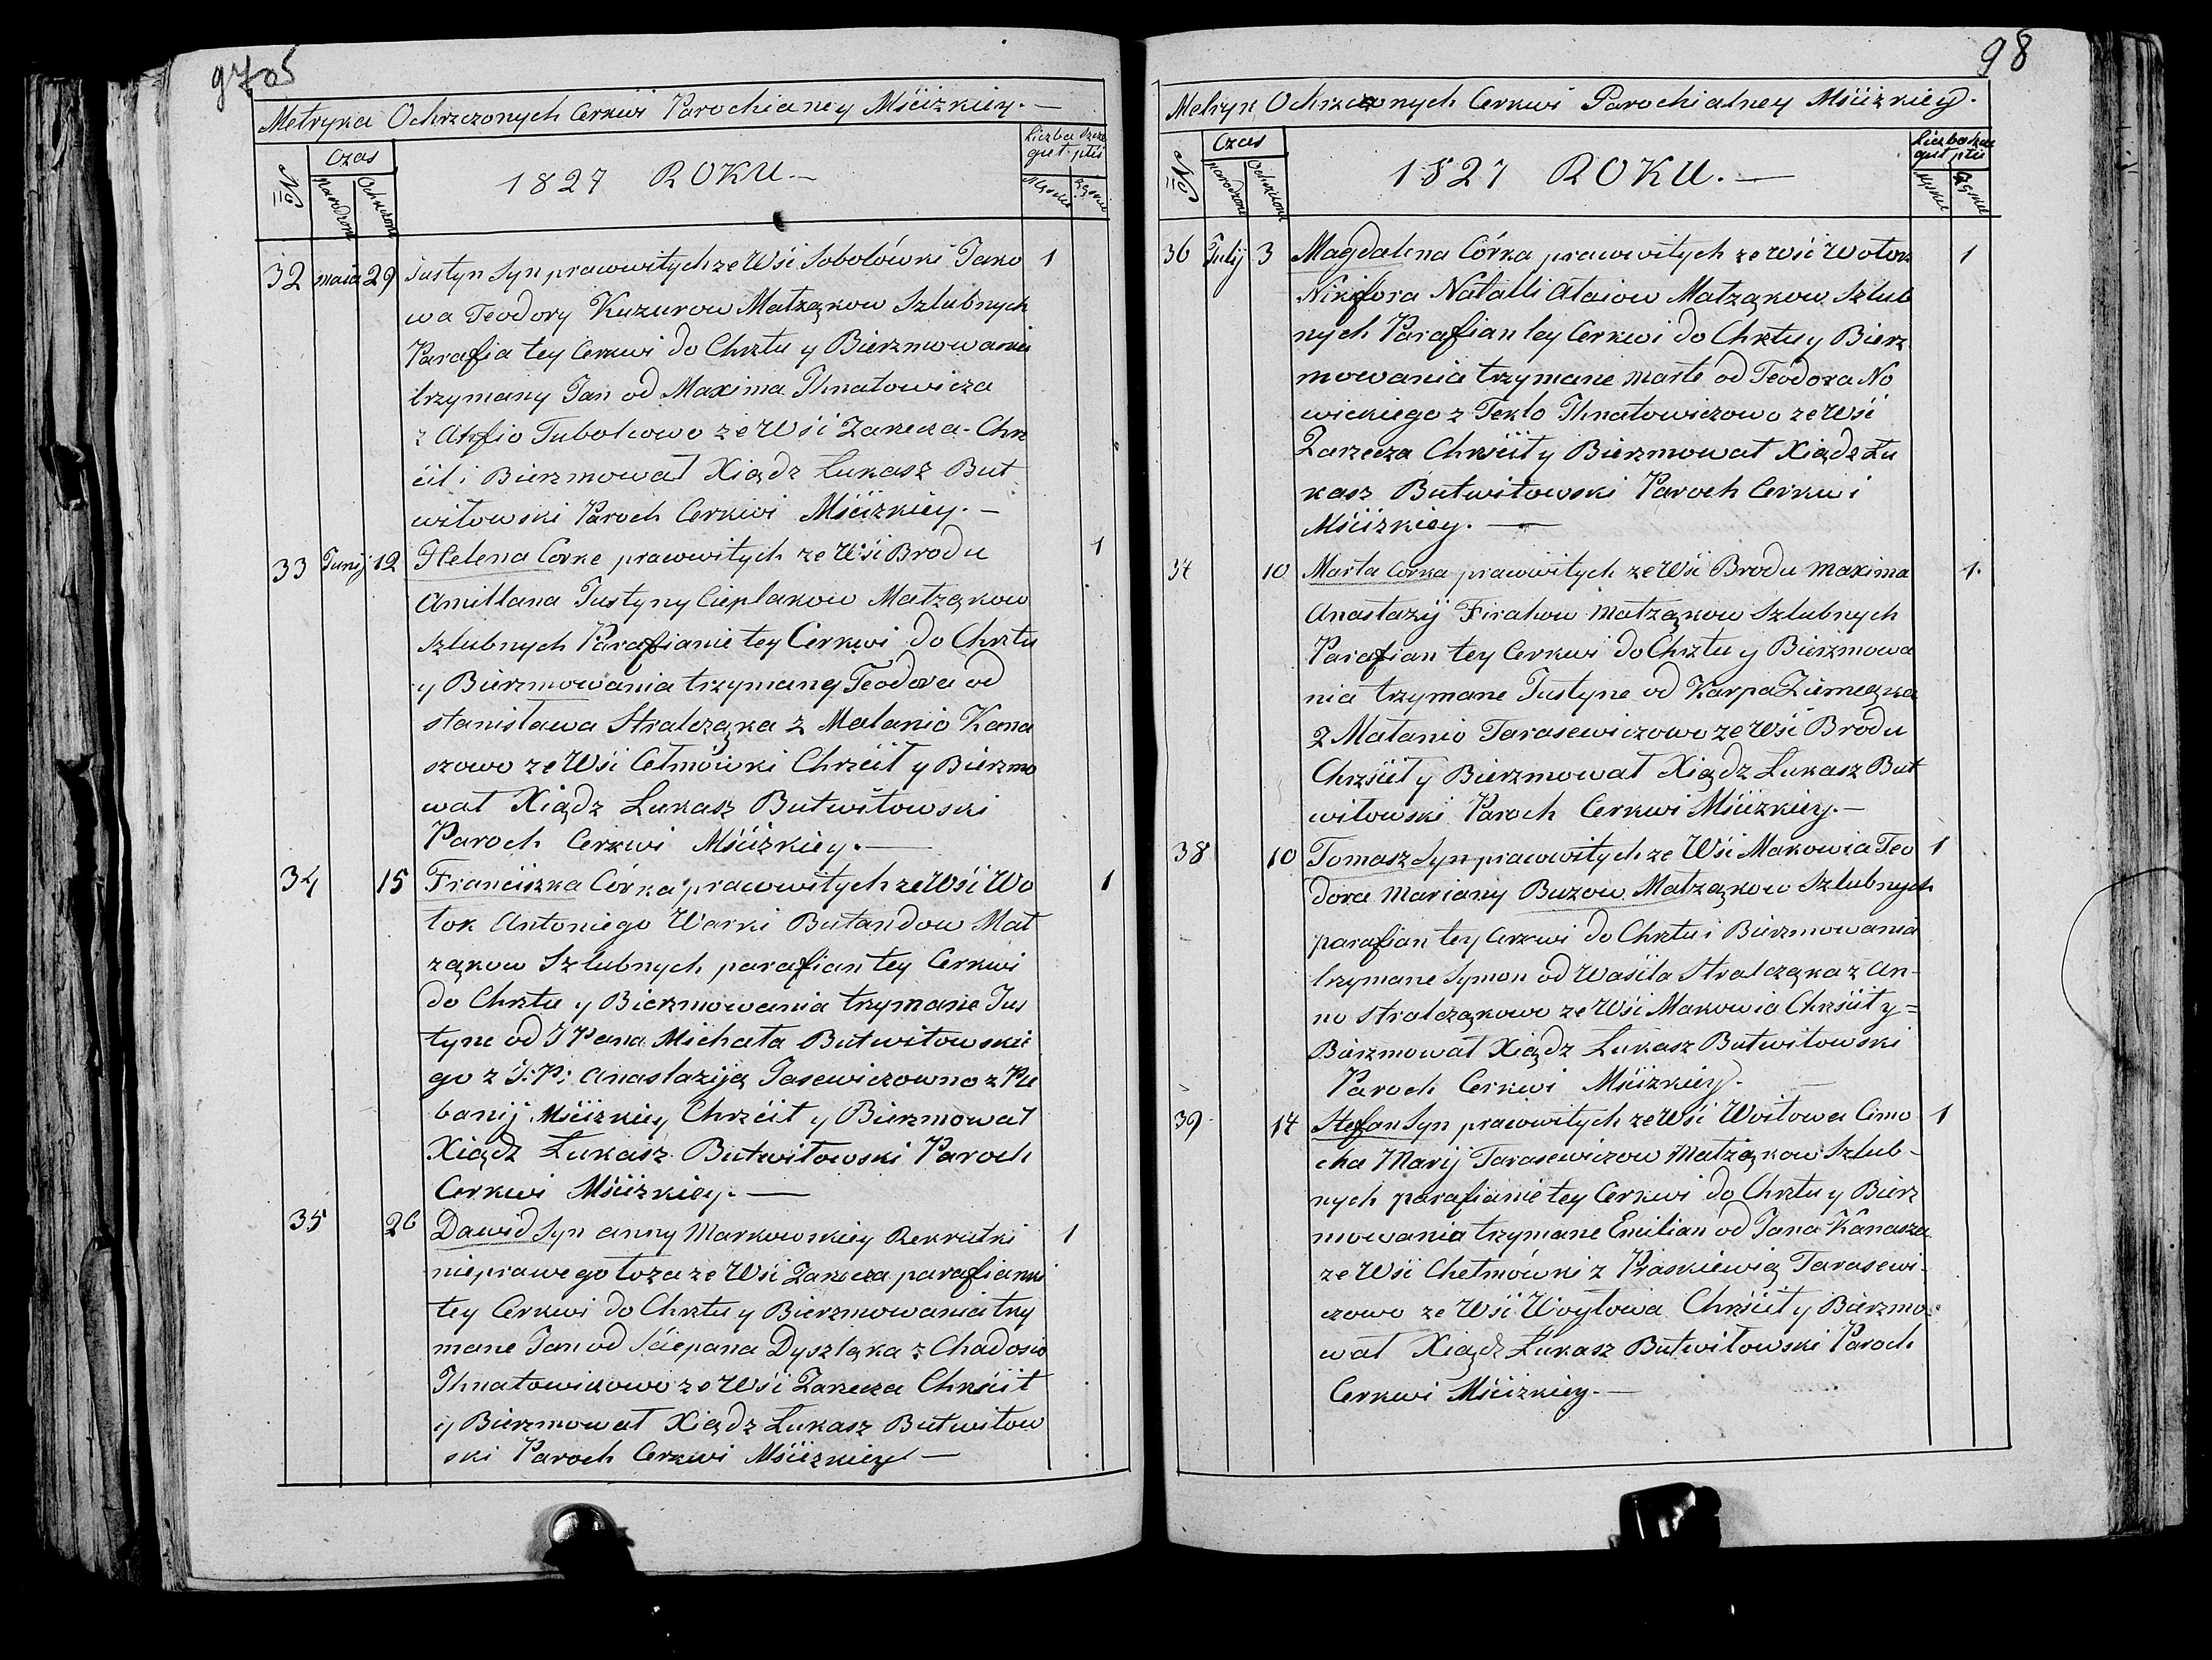 97 05
Metryka Ochrzczonych Cerkwi Parochianey Mściżkiey. —
No Czas 1827 ROKU. — Liczba Szcze
gul. płci
Narodzone Ochrzczone Męskiey Żęskiey
32 maia 29 Justyn Syn prawowitych ze Wśi Sobolówki Jako 1
wa Teodory Kuzurow Małżąkow Szlubnych
Parafia tey Cerkwi do Chrztu y Bierzmowania
trzymany Jan od Maxima Ihnatowicza
z Ahfio Tubolcowo ze Wśi Zarzecza. Chrz
ćił i Bierzmował Xiądz Łukasz But
wiłowski Paroch Cerkwi Mściżkiey. —
33 Junij 12 Helena Corke prawowitych ze Wśi Brodu 1
Amillana Justyny Cieplakow Małżąkow
Szlubnych Parafianie tey Cerkwi do Chrztu
y Bierzmowania trzymaney Teodora od
Stanisława Stralcząka z Malanio Kana
szowo ze Wśi Cełmówki Chrzćił y Bierzmo
wał Xiądz Łukasz Butwiłowski
Paroch Cerkwi Mściżkiey. —
34 15 Franciszka Córka prawowitych ze Wśi Wo 1
łok Antoniego Warki Butandow Mał
żąkow Szlubnych parafian tey Cerkwi
do Chrztu y Bierzmowania trzymanie Jus
tyne od J Pana Michała Butwiłowskie
go z J: P: Anastazyją Jasewiczowno z Ple
banij Mściżkiey Chrzćił y Bierzmował
Xiądz Łukasz Butwiłowski Paroch
Cerkwi Mściżkiey. —
35 26 Dawid Syn Anny Markowskiey Rekrutki 1
nieprawego łoża ze Wśi Zarzecza parafianki
tey Cerkwi do Chrztu y Bierzmowania trzy
mane Jan od Śćiepana Dyszląka z Chadosio
Ihnatowiczowo ze Wśi Zarzecza Chrzśćił
y Bierzmował Xiądz Łukasz Butwiłow
ski Paroch Cerkwi Mściżkiey —
98
Metryk Ochrzczonych Cerkwi Parochialney Mściżkiey.
No Czas 1827 ROKU. — Liczba Szcze
guł płci
Narodzone Ochrzczone Męskiey Żęskiey
36 Julij 3 Magdalena Córka prawowitych ze Wśi Wołok 1
Nikifora Natalli Ataiow Małżąkow Szlub
nych Parafian tey Cerkwi do Chrztu y Bierz
mowania trzymane Marte od Teodora No
wickiego z Teklo Ihnatowiczowo ze Wśi
Zarzecza Chrzśćił y Bierzmował Xiądz Łu
kasz Butwiłowski Paroch Cerkwi
Mściżkiey. —
37 10 Marta Corka prawowitych ze Wśi Brodu Maxima 1.
Anastazij Firahow Małżąkow Szlubnych
Parafian tey Cerkwi do Chrztu y Bierzmowa
nia trzymane Justyne od Karpa Ziemcążka
z Małanio Tarasewiczowo ze Wśi Brodu
Chrzśćił y Bierzmował Xiądz Łukasz But
wiłowski Paroch Cerkwi Mściżkiey. —
38 10 Tomasz Syn prawowitych ze Wśi Makowia Teo 1
dora Mariany Buzow Małżąkow Szlubnych
parafian tey Cerkwi do Chrztu i Bierzmowania
trzymane Symon od Waśila Stralcząka z An-
no Stralcząkowo ze Wśi Makowia Chrzśćił y =
Bierzmował Xiądz Łukasz Butwiłowski
Paroch Cerkwi Mściżkiey.
39 14 Stefan Syn prawowitych ze Wśi Woitowa Cimo 1
cha Marij Tarasewiczow Małżąkow Szlub-
nych parafianie tey Cerkwi do Chrztu y Bierz
mowania trzymane Emilian od Jana Kanasza
ze Wśi Chełmówki z Praskiewią Tarasewi-
czowo ze Wśi Woytowa Chrzśćił y Bierzmo
wał Xiądz Łukasz Butwiłowski Paroch
Cerkwi Mściżkiey. —